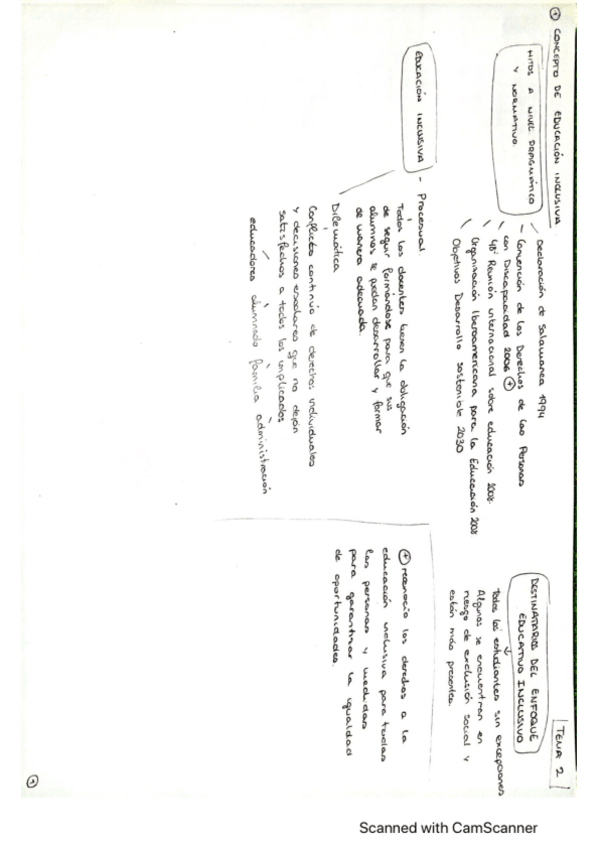 TEMA 2
① CONCEPTO DE EDUCACIÓN INCLUSIVA
HITOS A NIVEL PRAGMÁTICO
Y NORMATIVO
- Declaración de Salamanca 1994
- Convención de los Derechos de las Personas
con Discapacidad 2006 ⊕
- 48ª Reunión internacional sobre educación 2008
- Organización Iberoamericana para la Educación
- Objetivos Desarrollo Sostenible 2030
EDUCACIÓN INCLUSIVA
- Procesual
Todos los docentes tienen la obligación
de seguir formándose para que sus
alumnos se puedan desarrollar y formar
de manera adecuada.
Dilemática
Conflicto continuo de derechos individuales
y decisiones escolares que no dejan
satisfechos a todos los implicados
educadores alumnado familia administración
DESTINATARIOS DEL ENFOQUE
EDUCATIVO INCLUSIVO
↓
Todos los estudiantes sin excepciones
Algunos se encuentran en
riesgo de exclusión social y
están más presentes.
⊕ reconocía los derechos a la
educación inclusiva para todas
las personas y medidas
para garantizar la igualdad
de oportunidades.
①
Scanned with CamScanner